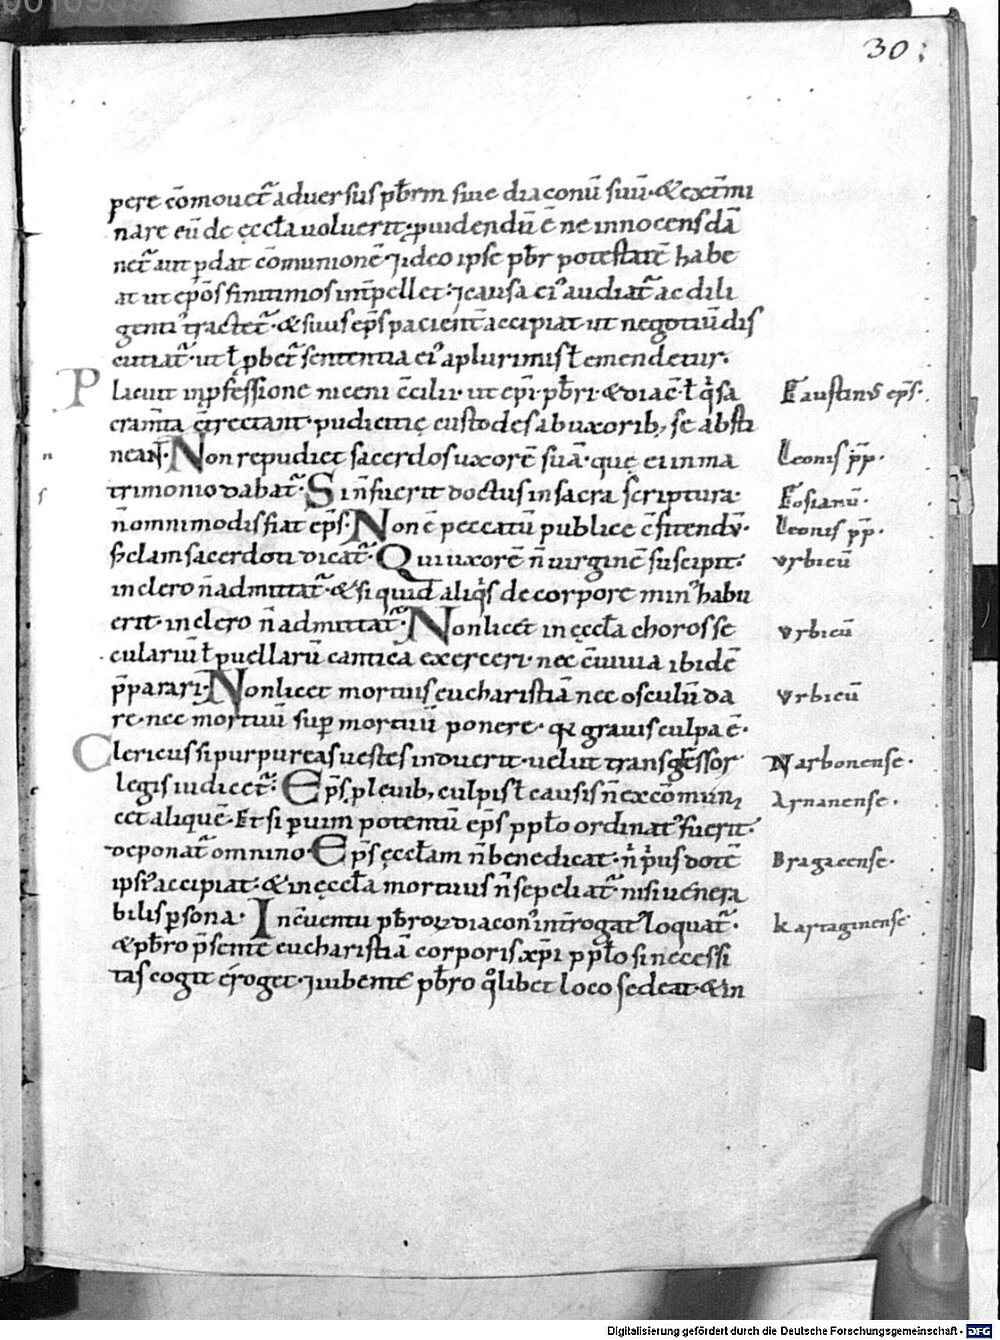 30
pere cōmouet᷒ aduersus pƀrm siue diaconū suū·&ext̄mi
nare eū de ęccƚa uoluerit·ꝓuidendū ē ne innocens dā
net᷒ aut ꝑdat cōmunionē·⁊ ideo ipse pƀr potestatē habe
at ut ep̄os finitimos int̄pellet·⁊ causa ei᷒ audiat᷒ ac dili
genti᷒ tractet᷒·&suus ep̄s pacient̄ accipiat ut negotiū dis
cutiat᷒·ut ƚ ꝓbet᷒ sententia ei᷒ a plurimis ƚ emendetur·
Placuit in ꝓfessione niceni c̄cilii·ut ep̄i·pƀri·&diac̄·ƚ qͥ sa
cram̄ta c̄trectant·pudicitię custodes ab uxorib; se absti
neant·Non repudiet sacerdos uxorē suā·quę ei in ma
trimonio dabat᷒·Si n̄ fuerit doctus in sacra scriptura·
n̄ omnimodis fiat ep̄s·Non ē peccatū publice c̄fitendū·
s; clam sacerdoti dicat᷒·Qui uxorē n̄ uirginē suscipit·
in clero n̄ admittat᷒·&si quid aliqͥs de corpore min᷒ habu
erit·in clero n̄ admittat᷒·Non licet in ęccƚa choros se
culariū ƚ puellarū cantica exerceri·nec c̄uiuia ibidē
p̄parari·Non licet mortuis eucharistiā nec osculū da
re·nec mortuū suꝑ mortuū ponere·qꝛ grauis culpa ē·
Clericus si purpureas uestes induerit·uelut transgressor
legis iudicet᷒·Ep̄s ꝓ leuib; culpis ƚ causis n̄ excōmuni
cet aliquē·Et si ꝑ uim potentū ep̄s ppƚo ordinat᷒ fuerit·
deponat᷒ omnino·Ep̄s ęccƚam n̄ benedicat·n̄ pͥus dotē
ipsi᷒ accipiat·&in ęccƚa mortuus n̄ sepeliat᷒·nisi uenera
bilis ꝑsona·In c̄uentu pƀroꝝ diacon᷒ int̄rogat᷒ loquat᷒·
&pƀro p̄sente eucharistiā corporis xp̄i ppƚo si necessi
tas cogit eroget·⁊ iubente pƀro qͦlibet loco sedeat·&in
Faustin᷒ ep̄s·
Leonis pp̄·
Fosianū·
Leonis pp̄·
Urbicū
Urbicū
Urbicū
Narbonense·
Arnanense·
Bragarense·
Kartaginense·
n
s
c
Digitalisierung gefördert durch die Deutsche Forschungsgemeinschaft - DFG